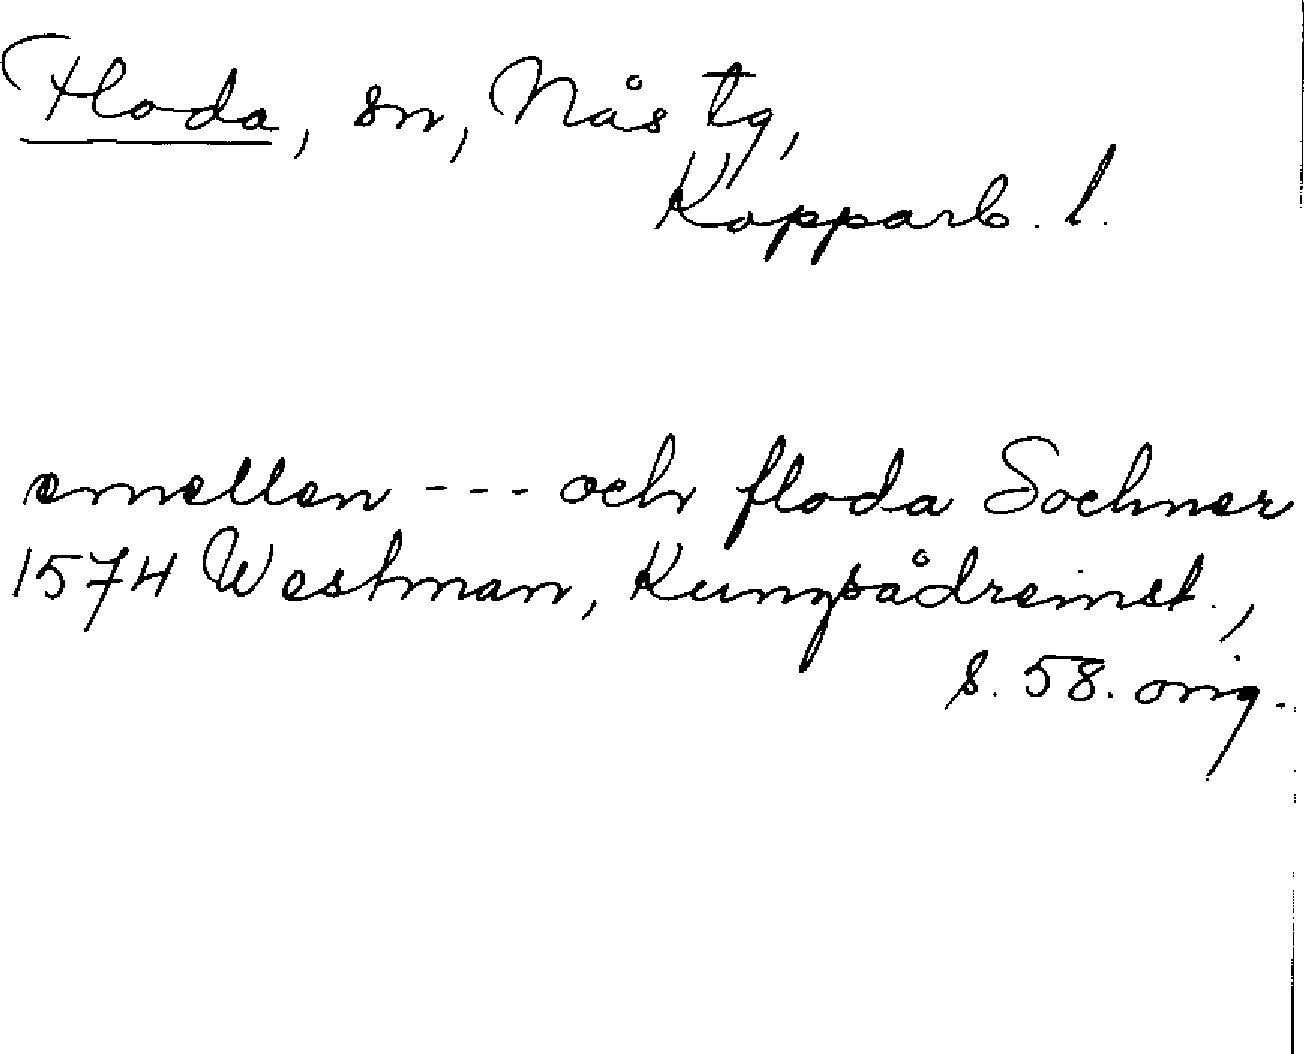 Floda, sn, Nås tg,
Kopparb. l.
emellen --- och floda Sochner
1574 Westman, Kungsådreinst.,
s. 58. orig.